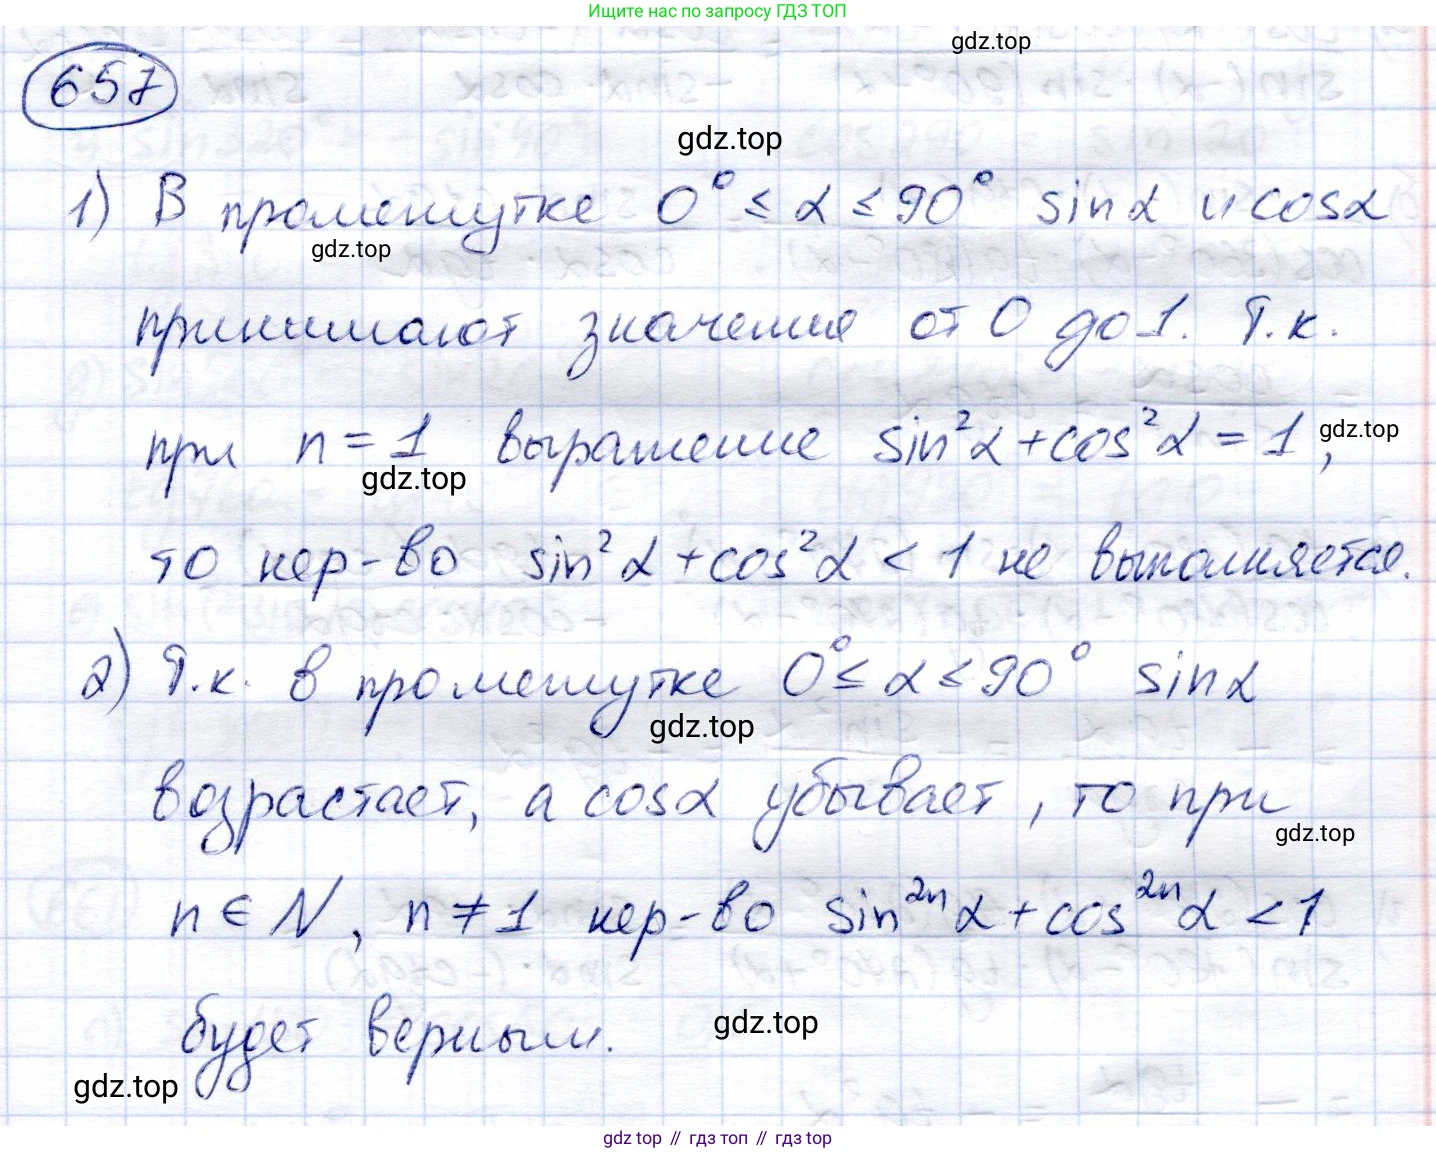 Ищите нас по запросу ГДЗ ТОП
gdz.top
657
gdz.top
1) В промежутке 0° ≤ α ≤ 90° sinα и cosα
gdz.top
принимают значения от 0 до 1. Т.к.
при n = 1 выражение sin²α + cos²α = 1,
gdz.top
gdz.top
то нер-во sin²α + cos²α < 1 не выполняется.
2) Т.к. в промежутке 0° ≤ α ≤ 90° sinα
gdz.top
возрастает, а cosα убывает, то при
gdz.top
n ∈ N, n ≠ 1 нер-во sin²ⁿα + cos²ⁿα < 1
будет верным.
gdz.top
gdz.top
gdz top // гдз топ // gdz top